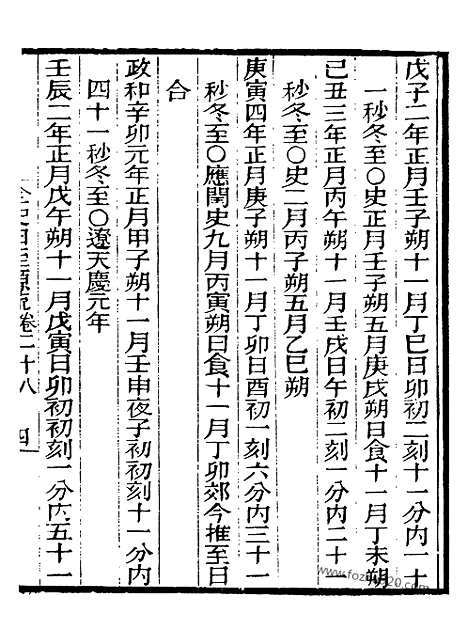 戊子二年正月壬子朔十一月丁巳日卯初二刻十一分內一十
一秒冬至○史正月壬子朔五月庚戌朔日食十一月丁未朔
己丑三年正月丙午朔十一月壬戌日午初二刻一分內二十
秒冬至○史二月丙子朔五月乙巳朔
庚寅四年正月庚子朔十一月丁卯日酉初一刻六分內三十一
秒冬至○應閏史九月丙寅朔日食十一月丁卯郊今推至日
合
政和辛卯元年正月甲子朔十一月壬申夜子初初刻十一分內
四十一秒冬至○遼天慶元年
壬辰二年正月戊午朔十一月戊寅日卯初初刻一分內五十一
卷二十八
四